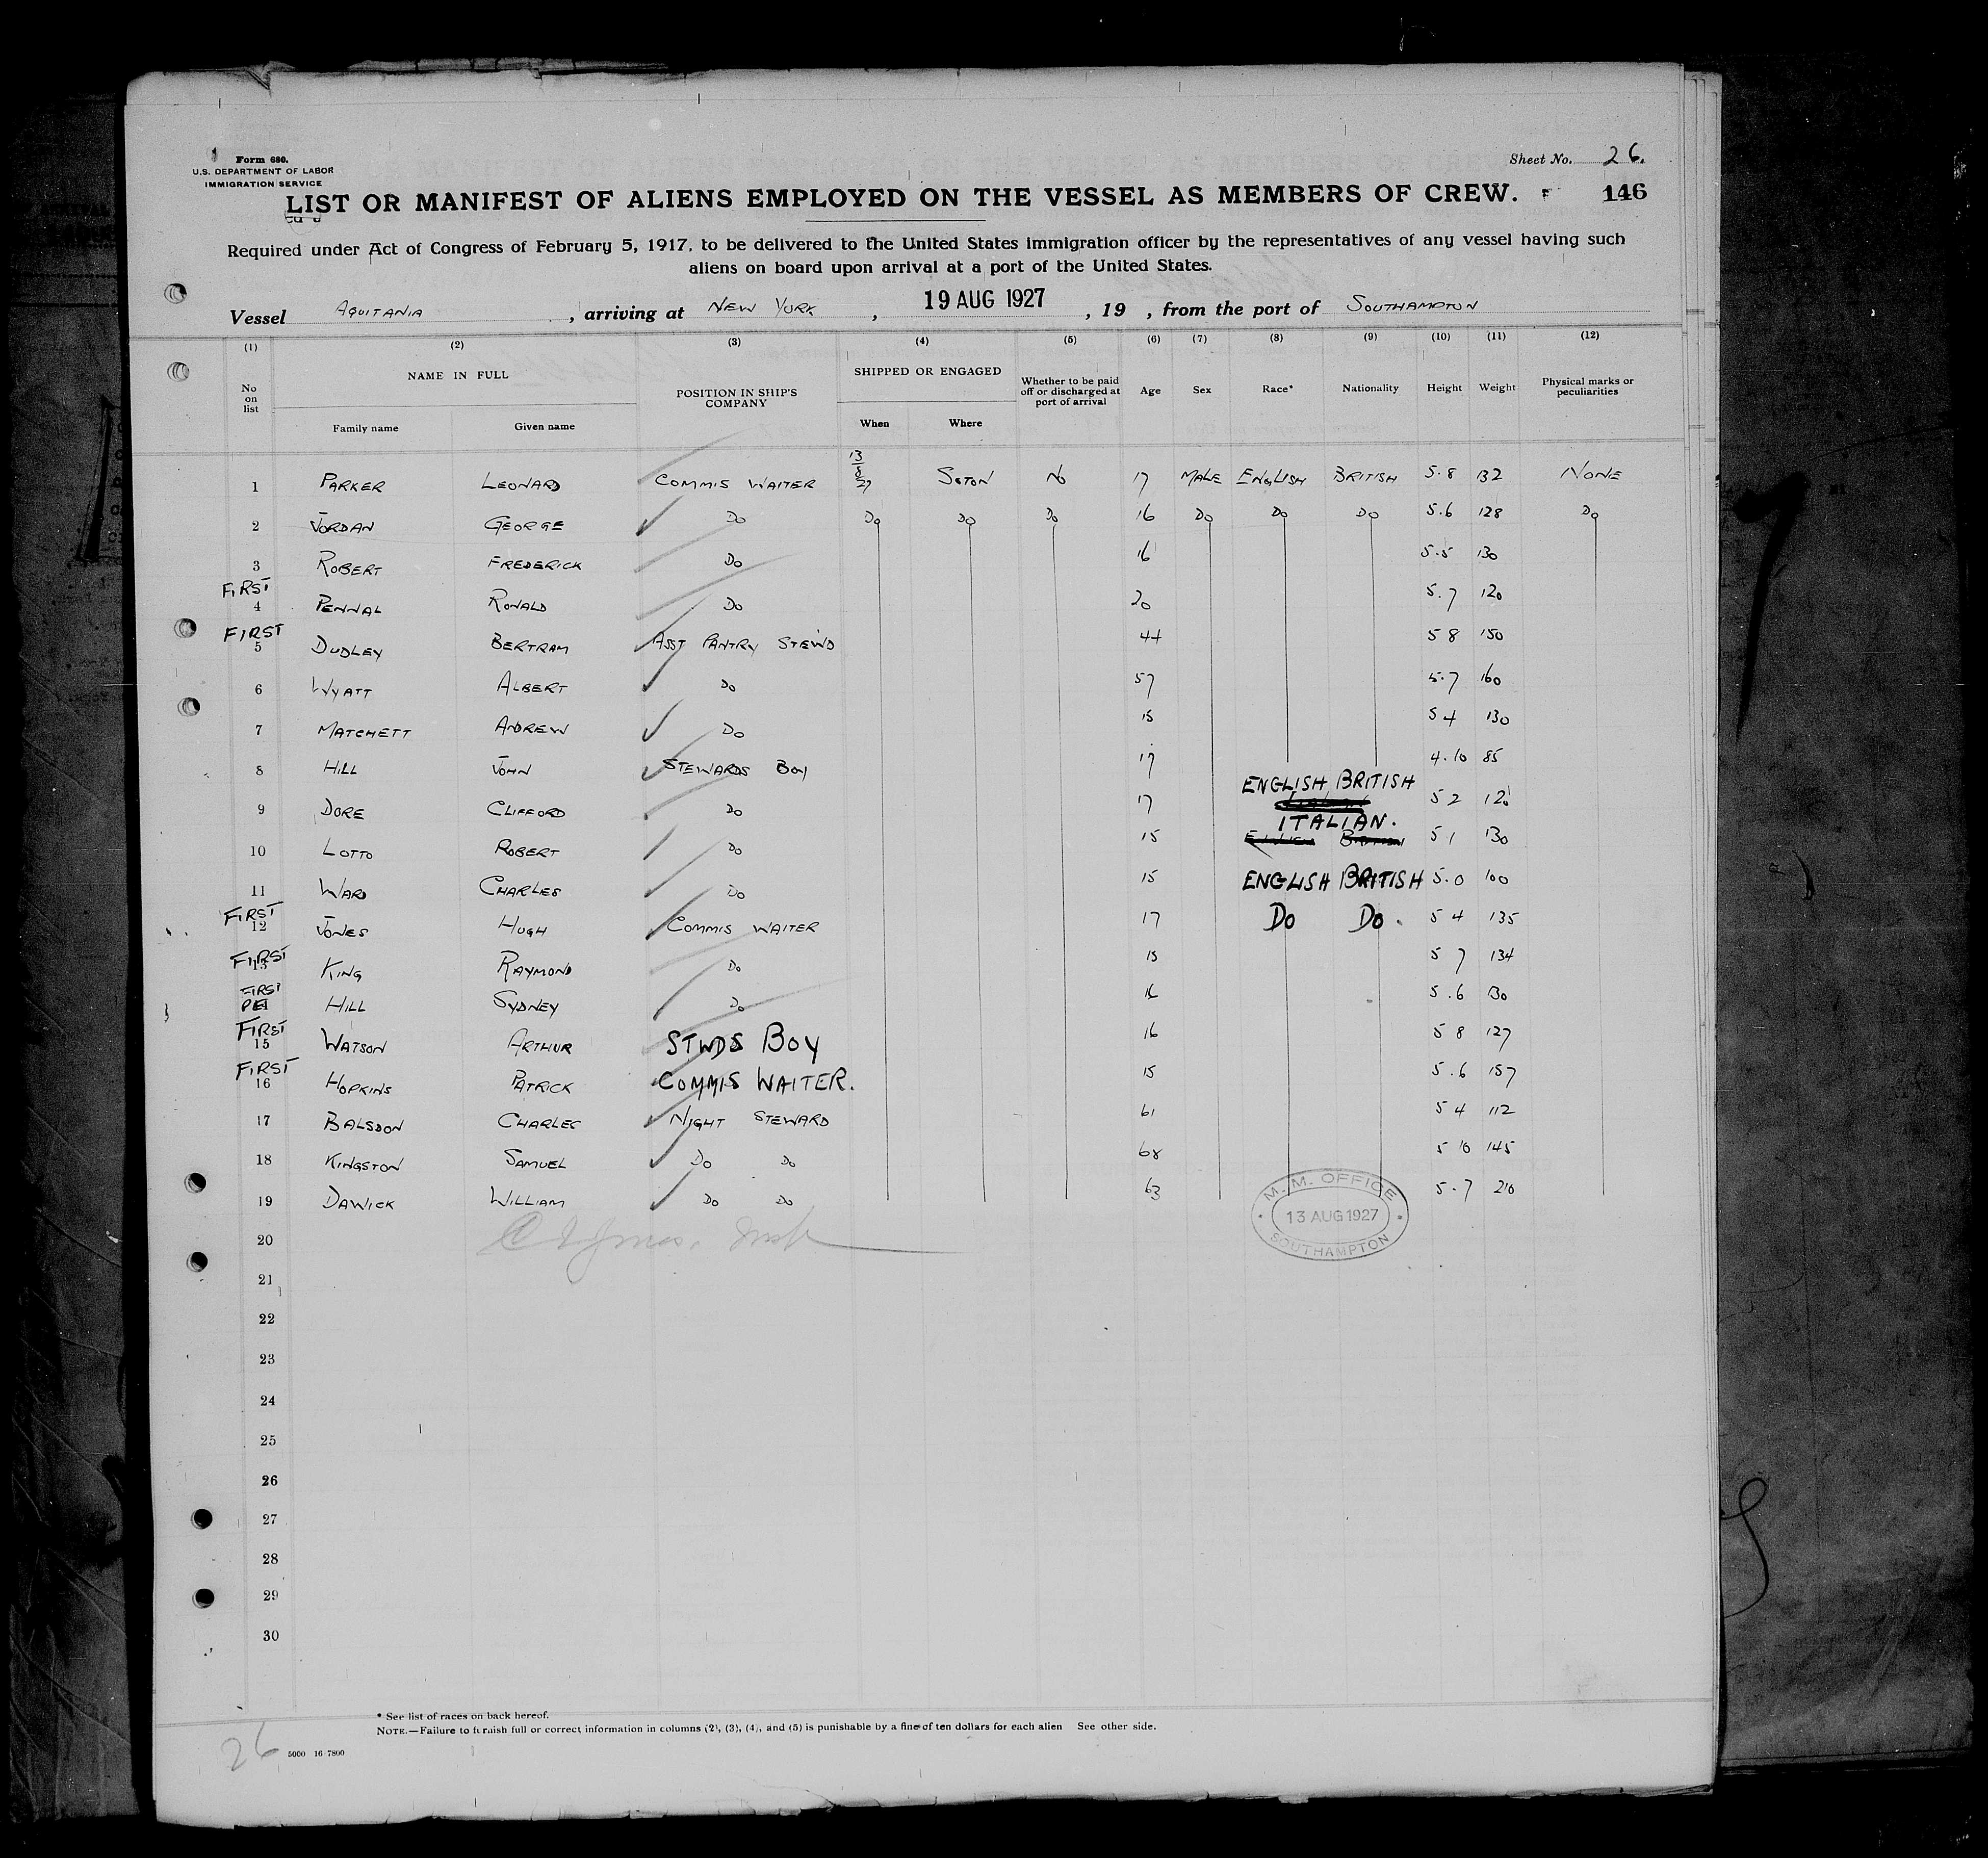 Form 680.
U.S. DEPARTMENT OF LABOR
IMMIGRATION SERVICE
Sheet No. 26.
LIST OR MANIFEST OF ALIENS EMPLOYED ON THE VESSEL AS MEMBERS OF CREW. 146
Required under Act of Congress of February 5, 1917, to be delivered to the United States immigration officer by the representatives of any vessel having such
aliens on board upon arrival at a port of the United States.
Vessel AQUITANIA, arriving at NEW YORK, 19 AUG 1927, 19 , from the port of SOUTHAMPTON
(1) (2) (3) (4) (5) (6) (7) (8) (9) (10) (11) (12)
No on list NAME IN FULL POSITION IN SHIP'S COMPANY SHIPPED OR ENGAGED Whether to be paid off or discharged at port of arrival Age Sex Race* Nationality Height Weight Physical marks or peculiarities
Family name Given name When Where
1 PARKER LEONARD COMMIS WAITER 13/8/27 SOTON NO 17 MALE ENGLISH BRITISH 5.8 132 NONE
2 JORDAN GEORGE DO DO DO DO 16 DO DO DO 5.6 128 DO
3 ROBERT FREDERICK DO 16 5.5 130
FIRST
4 PENNAL RONALD DO 20 5.7 120
FIRST
5 DUDLEY BERTRAM ASST PANTRY STEWD 44 5 8 150
6 WYATT ALBERT DO 57 5.7 160
7 MATCHETT ANDREW DO 15 5 4 130
8 HILL JOHN STEWARDS BOY 17 4.10 85
9 DORE CLIFFORD DO 17 ENGLISH BRITISH 5 2 120
10 LOTTO ROBERT DO 15 ITALIAN. 5 1 130
11 WARD CHARLES DO 15 ENGLISH BRITISH 5.0 100
FIRST
12 JONES HUGH COMMIS WAITER 17 DO DO. 5 4 135
FIRST
13 KING RAYMOND DO 15 5 7 134
FIRST
HILL SYDNEY DO 16 5.6 130
FIRST
15 WATSON ARTHUR STWDS BOY 16 5 8 127
FIRST
16 HOPKINS PATRICK COMMIS WAITER. 15 5.6 157
17 BALSDON CHARLES NIGHT STEWARD 61 5 4 112
18 KINGSTON SAMUEL DO DO 68 5 10 145
19 DAWICK WILLIAM DO DO 63 5.7 210
M.M. OFFICE
13 AUG 1927
SOUTHAMPTON
20
21
22
23
24
25
26
27
28
29
30
* See list of races on back hereof.
NOTE.—Failure to furnish full or correct information in columns (2), (3), (4), and (5) is punishable by a fine of ten dollars for each alien See other side.
26
5000 16 7800